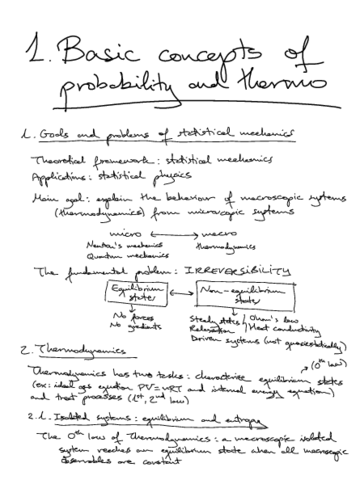 1. Basic concepts of
probability and thermo
1. Goals and problems of statistical mechanics
Theoretical framework: statistical mechanics
Applications: statistical physics
Main goal: explain the behaviour of macroscopic systems
(thermodynamics) from microscopic systems
micro ⟷ macro
Newton's mechanics thermodynamics
Quantum mechanics
The fundamental problem: IRREVERSIBILITY
Equilibrium ⟷ Non-equilibrium
states states
No forces Steady states / Ohm's law
No gradients Relaxation / Heat conductivity
Driven systems (not quasistatically)
2. Thermodynamics
(0th law)
Thermodynamics has two tasks: characterize equilibrium states
(ex: ideal gas equation PV=nRT and internal energy equation)
and treat processes (1st, 2nd law)
2.1. Isolated systems: equilibrium and entropy
The 0th law of thermodynamics: a macroscopic isolated
system reaches an equilibrium state when all macroscopic
observables are constant